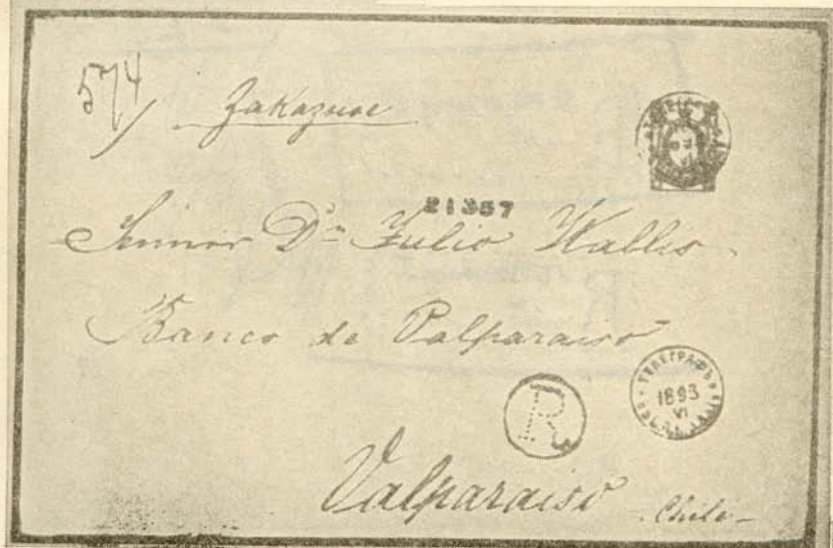 574/ Zakaznoe
21357
Sennor Dn Julio Wallis
Banco de Valparaiso
ТЕЛЕГРАФЪ
1893
VI
R
Valparaiso Chile